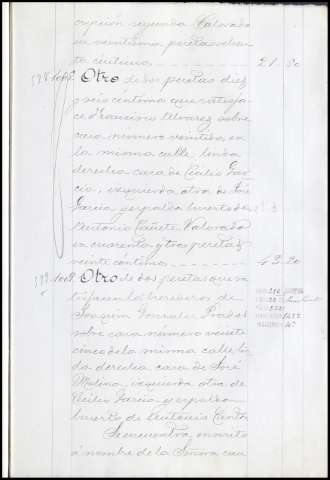 cripción segunda Valorado
en veintiuna pesetas ochen-
ta céntimos 21 80
Otro de dos pesetas diez
y seis céntimos que satisfa-
ce Francisco Alvarez sobre
casa número veintidos en
la misma calle, linda
derecha casa de Cecilio Gar-
cía, izquierda otra de José
García y espalda huerto de
Antonio Cañete. Valorado
en cuarenta y tres pesetas
veinte céntimos 43 20
Otro de dos pesetas que sa-
tisfacen los herederos de
Joaquín Gonzalez Prados
sobre casa número veinti
cinco de la misma calle lin-
da derecha casa de José
Molina, izquierda otra de
Cecilio García y espalda
huerto de Antonio
Se encuentra inscrito
á nombre de la Señora